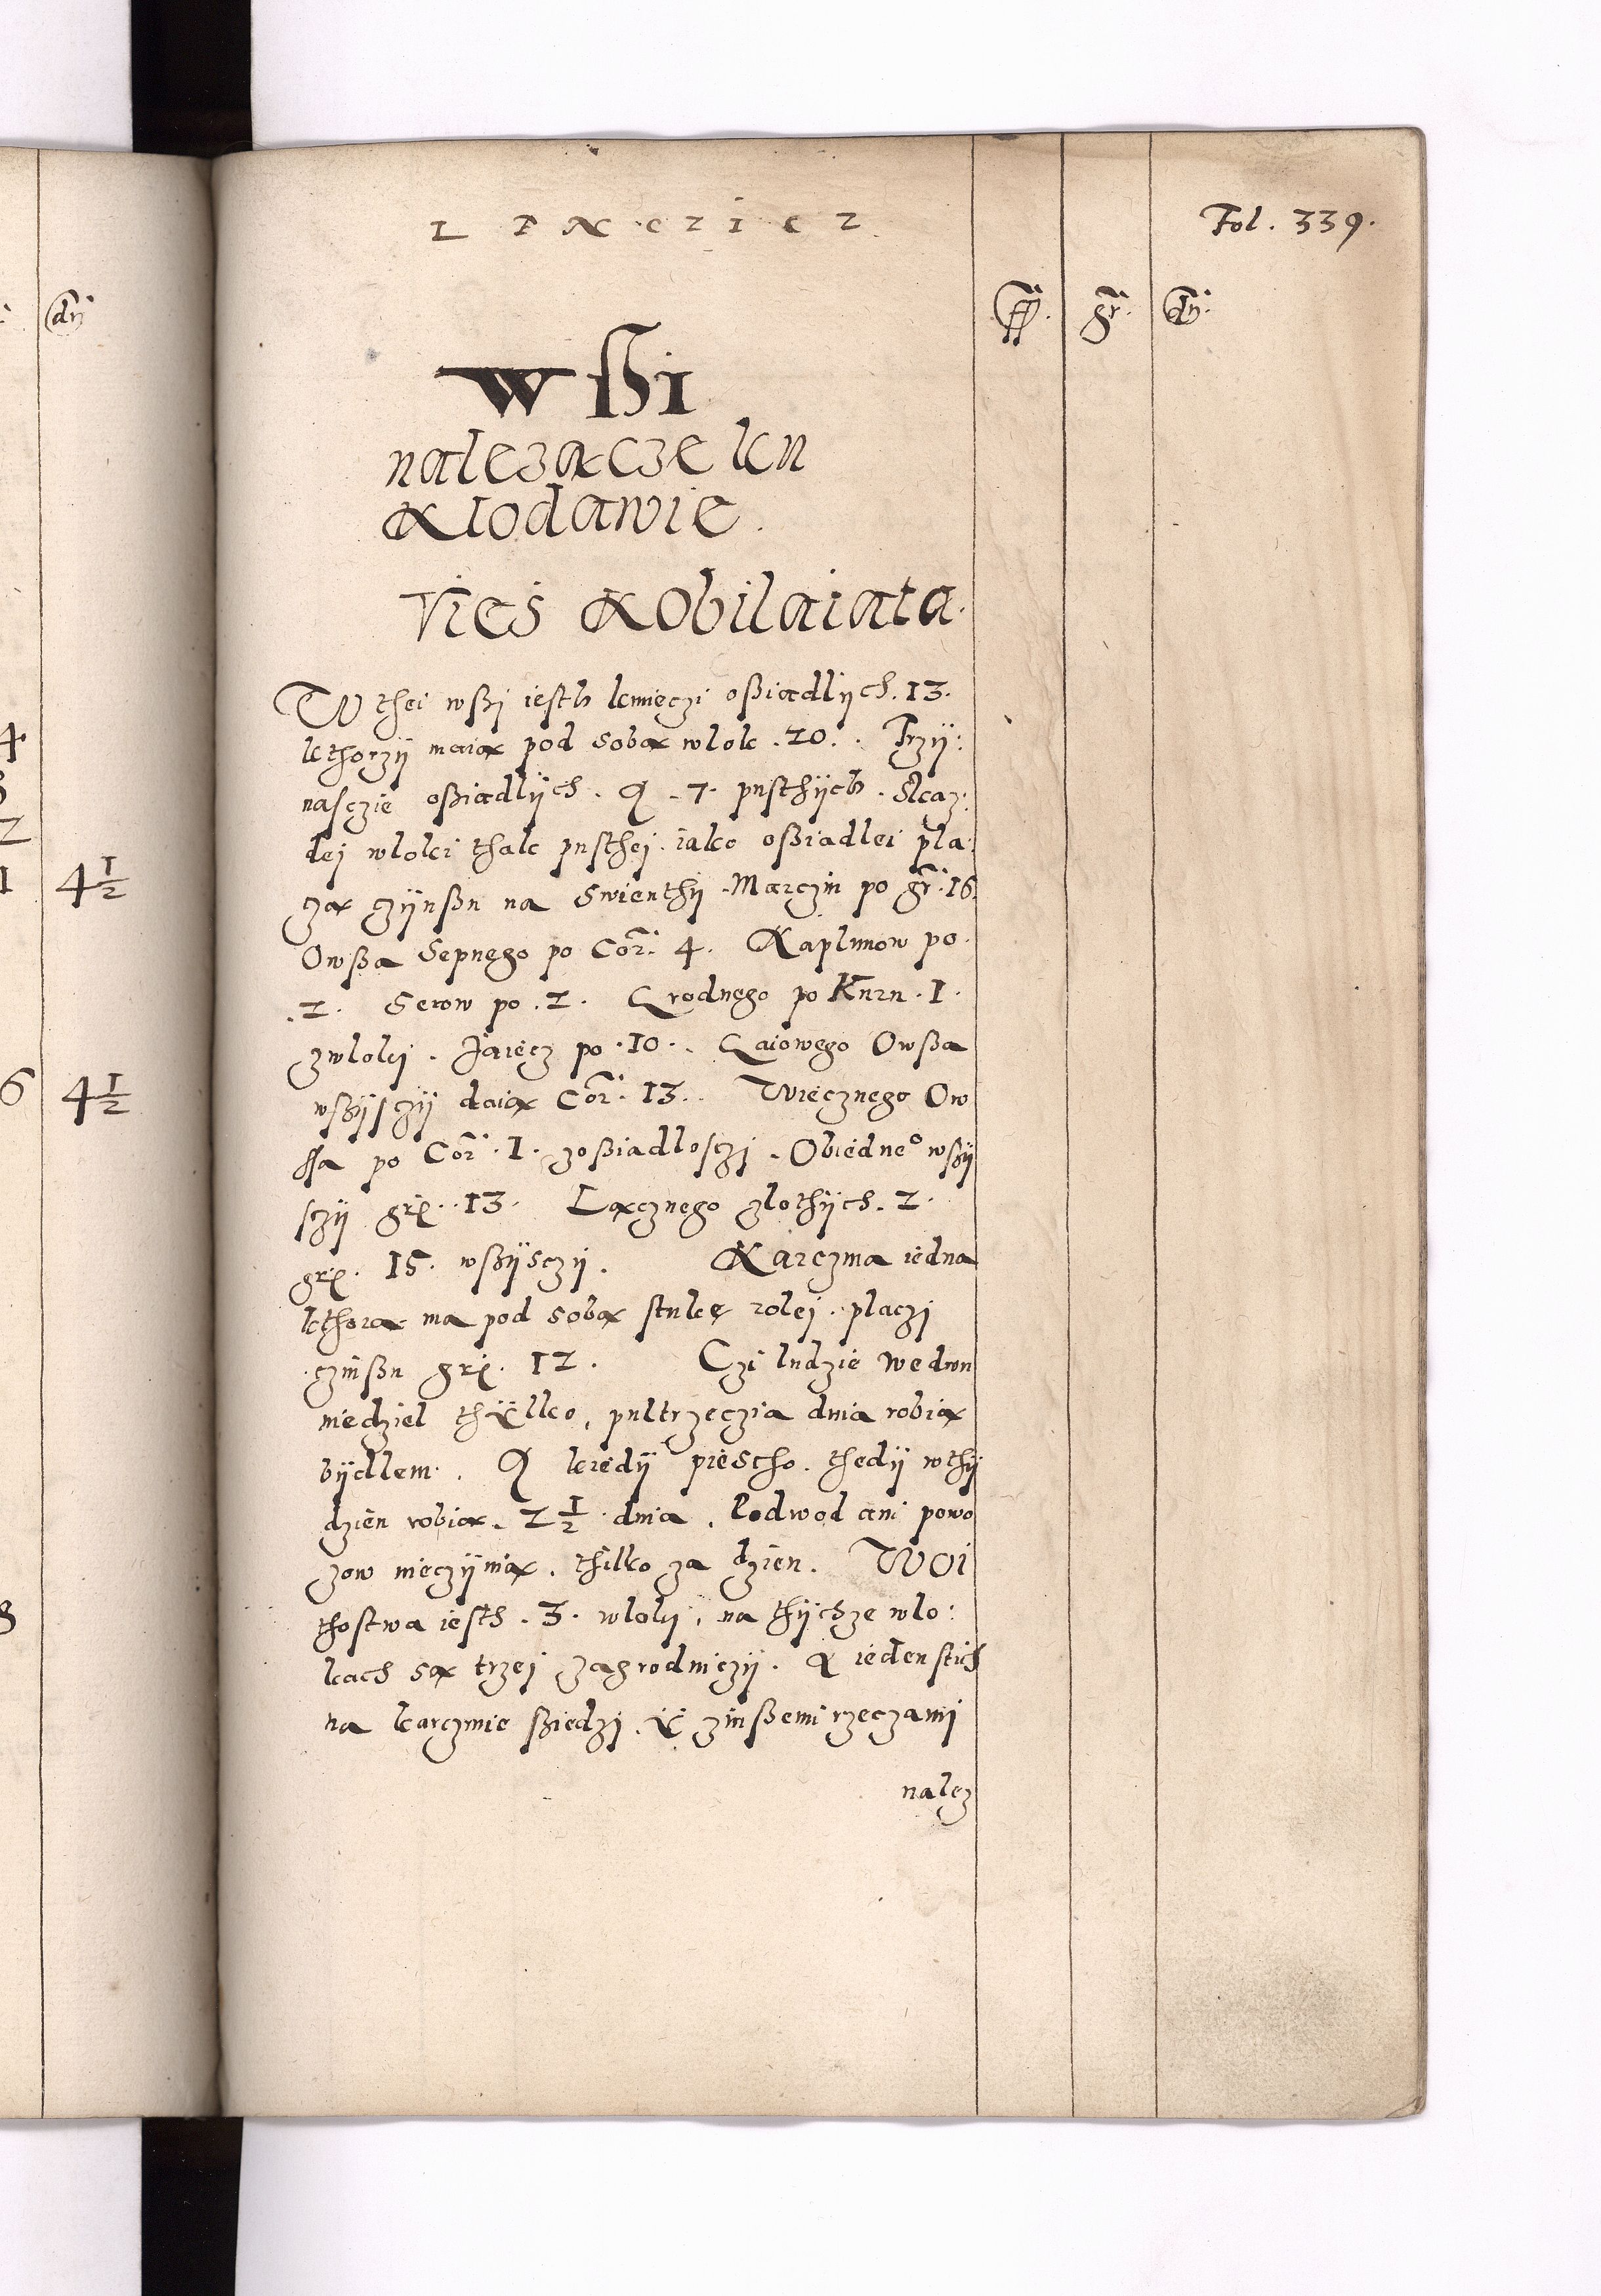 Fol. 339.
ff. gr. dn.
Wßi
należącze ku
Kłodawie.
Vieś Kobilaiata.
W thei wßj iesth kmieczi oßiadlÿch. 13.
kthorzÿ maią pod sobą wlok .20. . Trzÿ:
nasczie oßiadlÿch. A .7. pusthÿch. Skaz:
dej wloki thak pusthej iako oßiadlei pla:
czą czÿnßu na Swienthÿ Marczin po gr. 16.
Owßa Sepnego po Cor. 4. Kaplunow po.
.2. Serow po .2. Grodnego po Kurn. 1.
zwlokj. Jaiecz po .10. . Gaiowego Owßa
wßÿsczÿ daią Cor. 13. . Wiecznego Ow
ßa po Cor. 1. zoßiadlosczj. Obiedneº wßÿ
sczÿ grx. 13. Łącznego zlothÿch. 2.
grx. 15. wßÿsczÿ. Karczma iedna
kthora ma pod sobą stukę rolej. placzj
czinßu grx. 12. Czi ludzie wedwu
niedziel thÿlko, pultrzeczia dnia robią
bÿdlem. A kiedÿ piescho. thedÿ wthÿ
dzien robią. 2 1/2 dnia. Podwod ani powo
zow nieczÿnią. thilko za dzien. Woi
thostwa iesth .3. wlokj, na thÿchze wlo:
kach są trzej zagrodniczÿ. A ieden stich
na karczmie ßiedzj. Ÿ zinßemi rzeczami
należ
4
1 4 1/2
6 4 1/2
dn